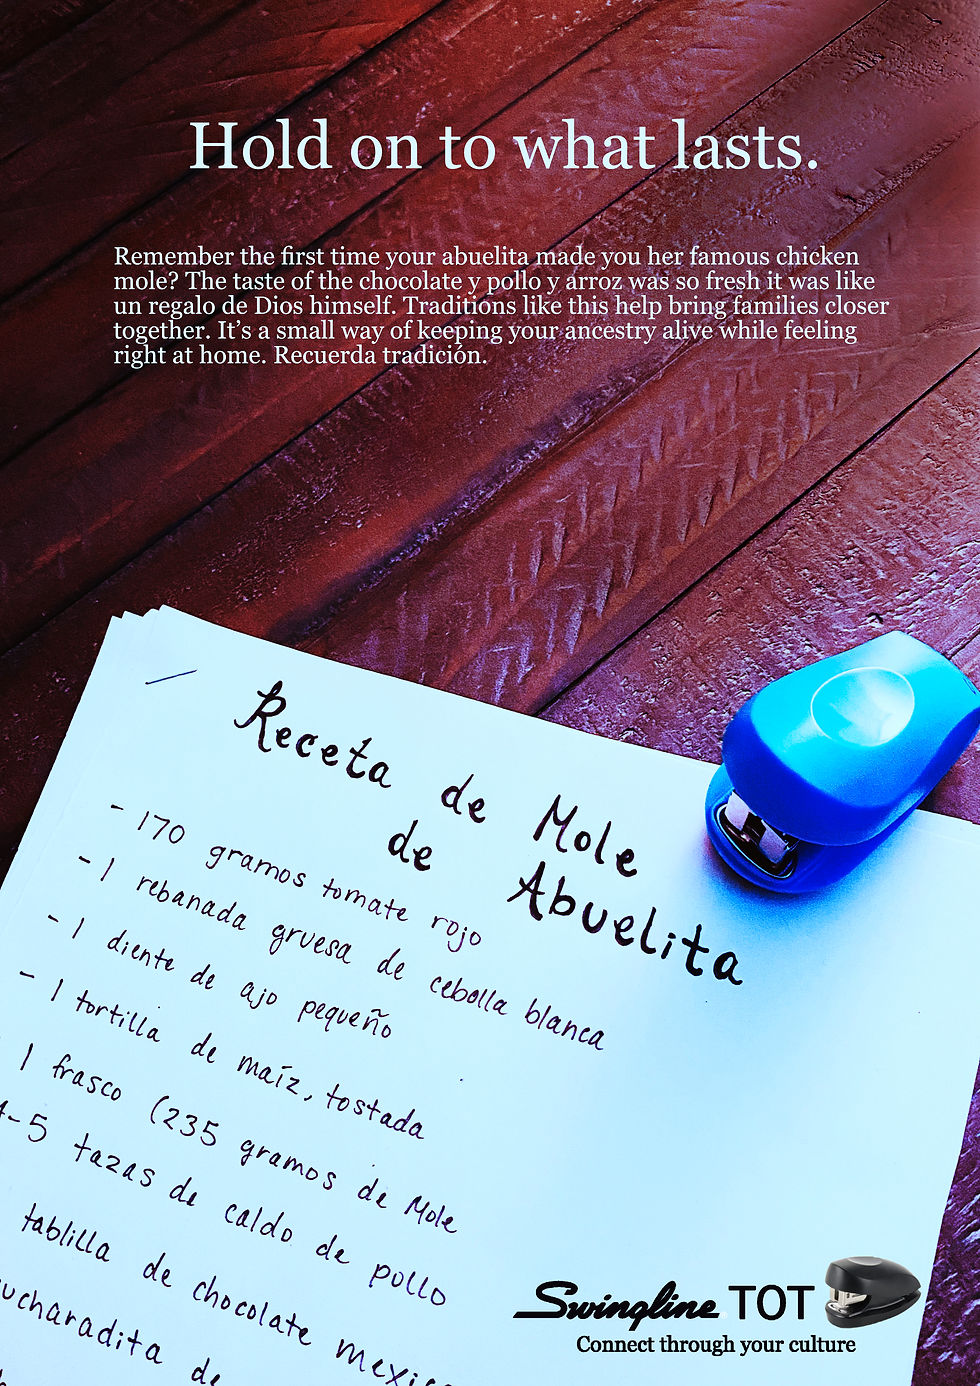 Hold on to what lasts.
Remember the first time your abuelita made you her famous chicken
mole? The taste of the chocolate y pollo y arroz was so fresh it was like
un regalo de Dios himself. Traditions like this help bring families closer
together. It's a small way of keeping your ancestry alive while feeling
right at home. Recuerda tradición.
Receta de Mole
de Abuelita
- 170 gramos tomate rojo
- 1 rebanada gruesa de cebolla blanca
- 1 diente de ajo pequeño
- 1 tortilla de maíz, tostada
1 frasco (235 gramos de Mole
4-5 tazas de caldo de pollo
tablilla de chocolate mexic
ucharadita de
Swingline TOT
Connect through your culture